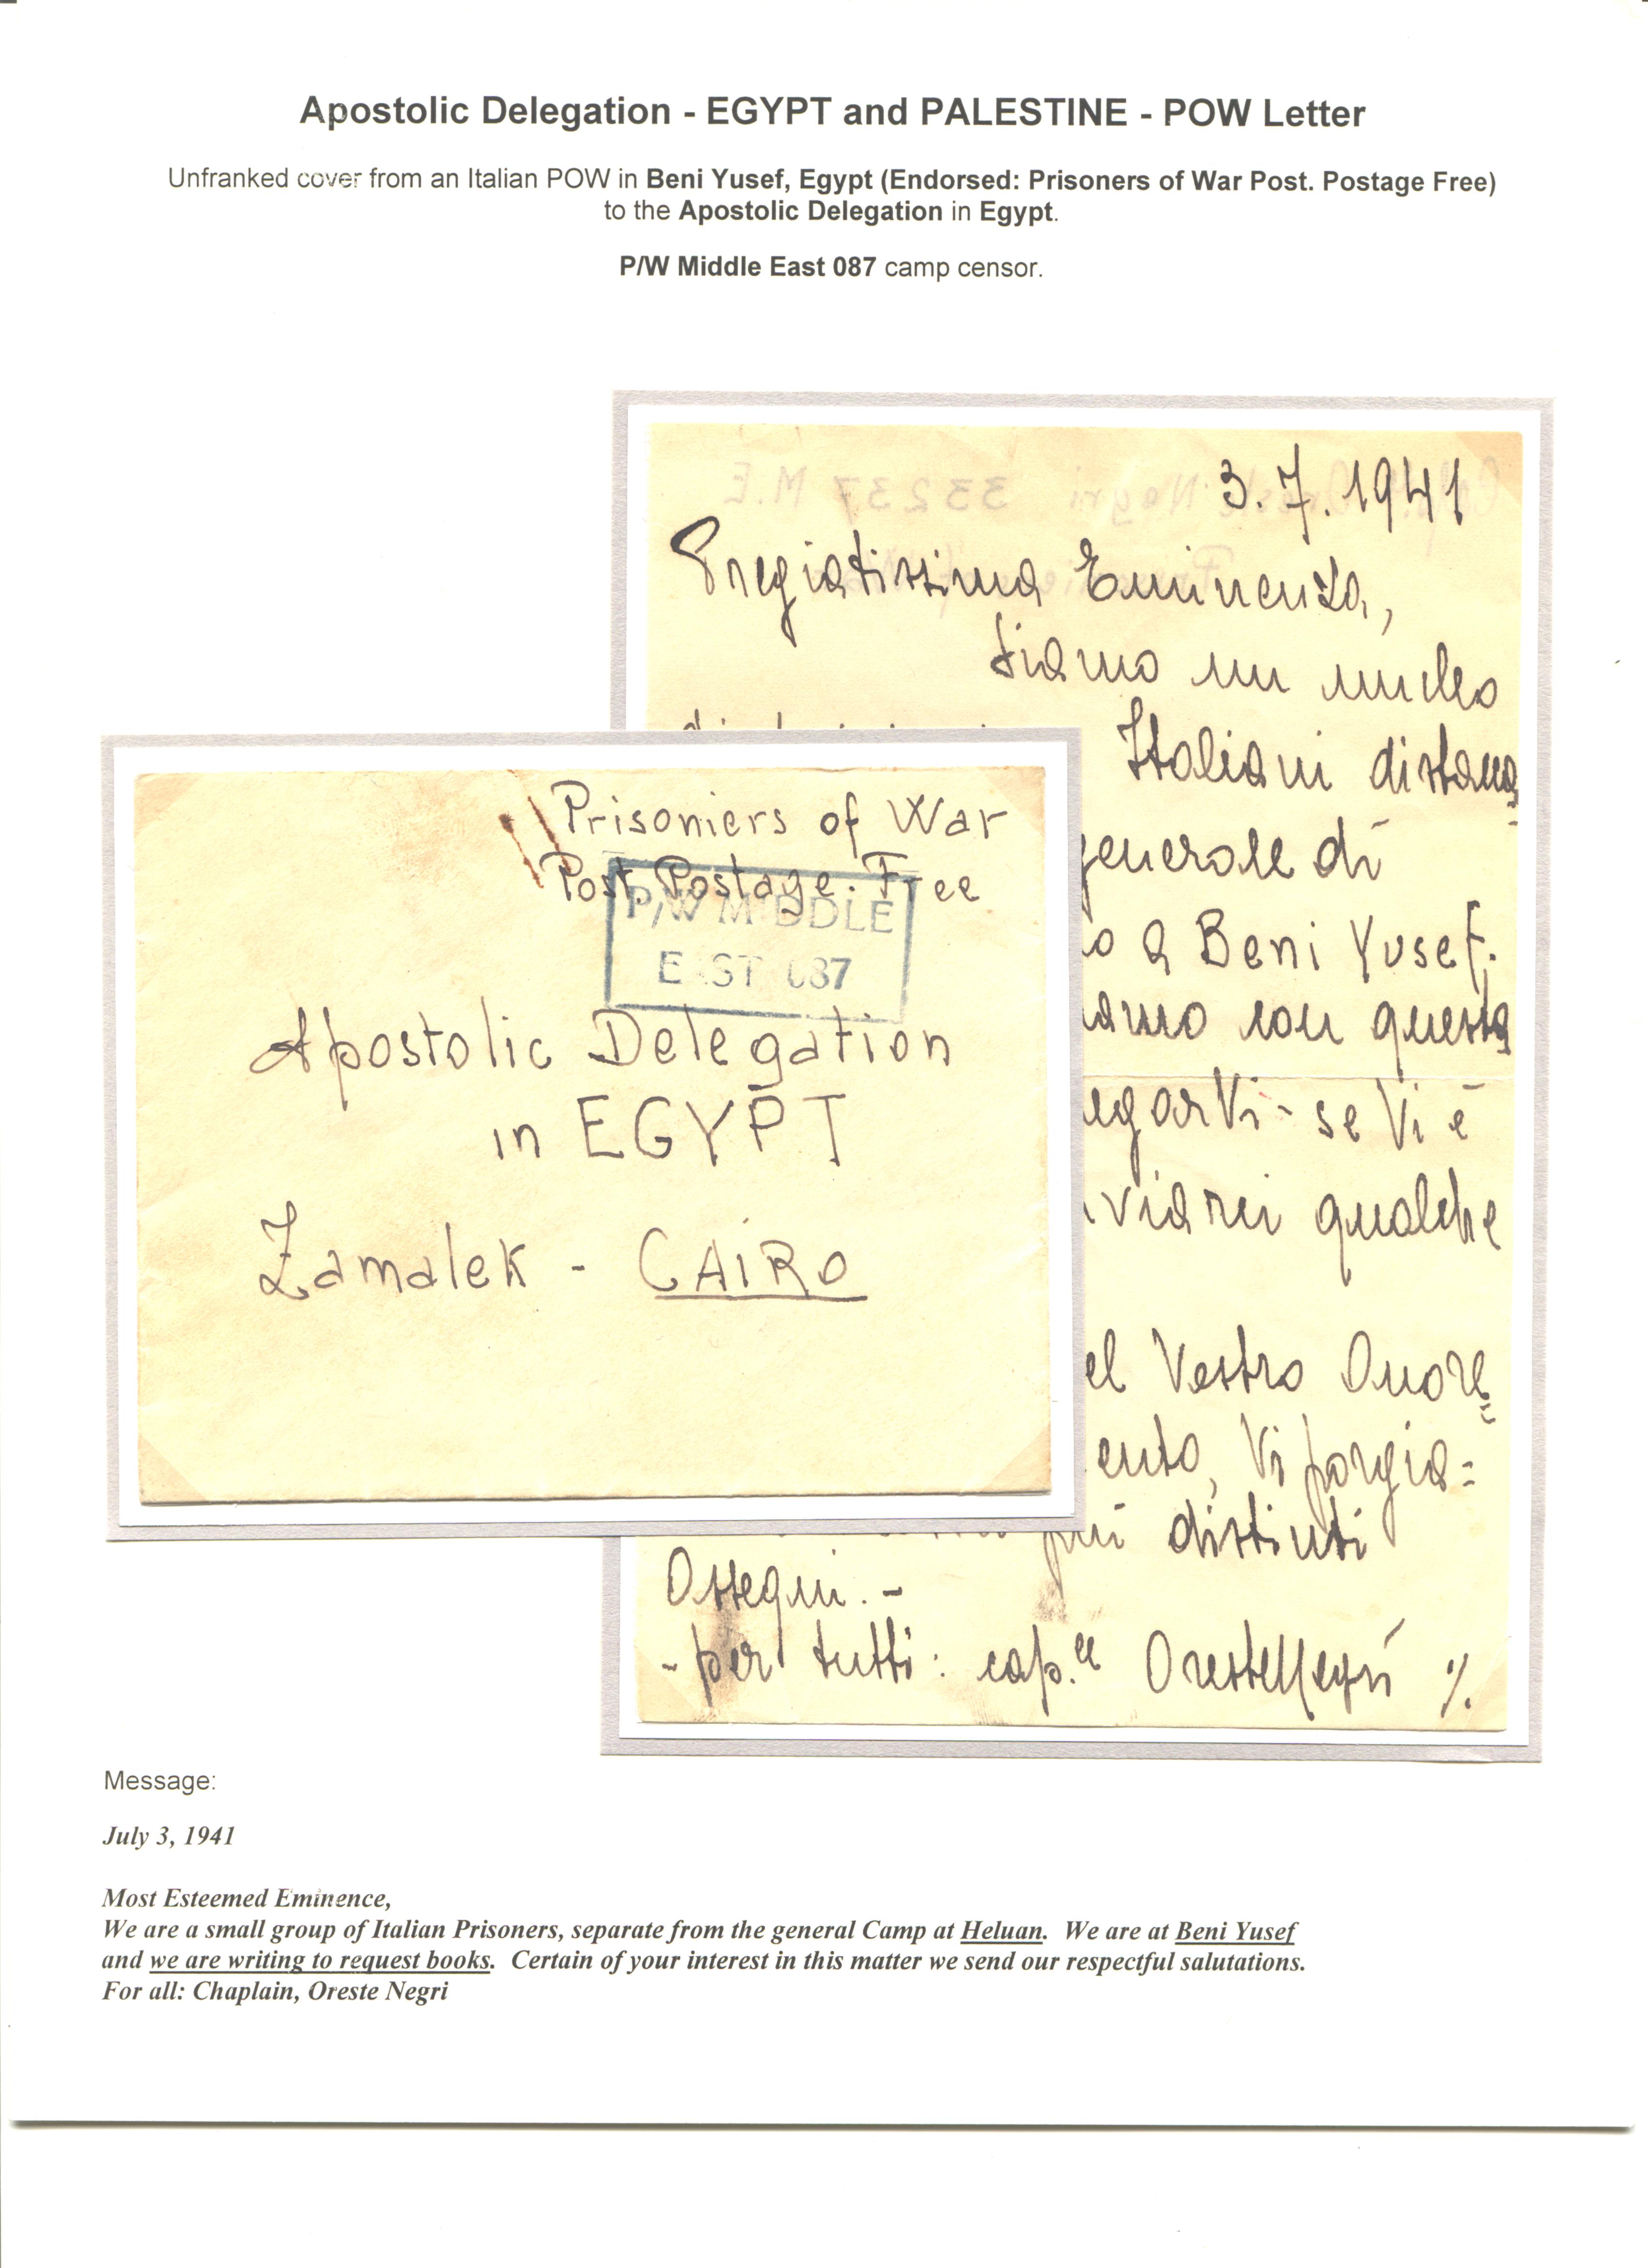 Apostolic Delegation - EGYPT and PALESTINE - POW Letter
Unfranked cover from an Italian POW in Beni Yusef, Egypt (Endorsed: Prisoners of War Post. Postage Free)
to the Apostolic Delegation in Egypt.
P/W Middle East 087 camp censor.
33237 M.E
3.7.1941
Pregiatissima Eminenza,
siamo un nucleo
Italiani distana
generale di
a Beni Yusef.
con questa
se Vi è
qualche
Vestro Onore
Vi porgia=
più distinti
Ossequi. -
- per tutti: cap.  Oreste Negri
Prisoniers of War
Post. Postage. Free
P/W MIDDLE
EAST 087
Apostolic Delegation
in EGYPT
Zamalek - CAIRO
Message:
July 3, 1941
Most Esteemed Eminence,
We are a small group of Italian Prisoners, separate from the general Camp at Heluan. We are at Beni Yusef
and we are writing to request books. Certain of your interest in this matter we send our respectful salutations.
For all: Chaplain, Oreste Negri